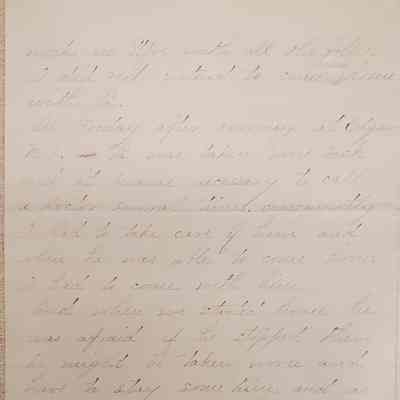 me with all the
I did not intend to come home
with
On Friday after
he was taken
and it became necessary to call
a doctor several times, consequently
I had to take care of him and
when he was able to come home
I had to come with him.
And when we started home he
was afraid if he stopped there
he might be taken worse and
have to stay some time and